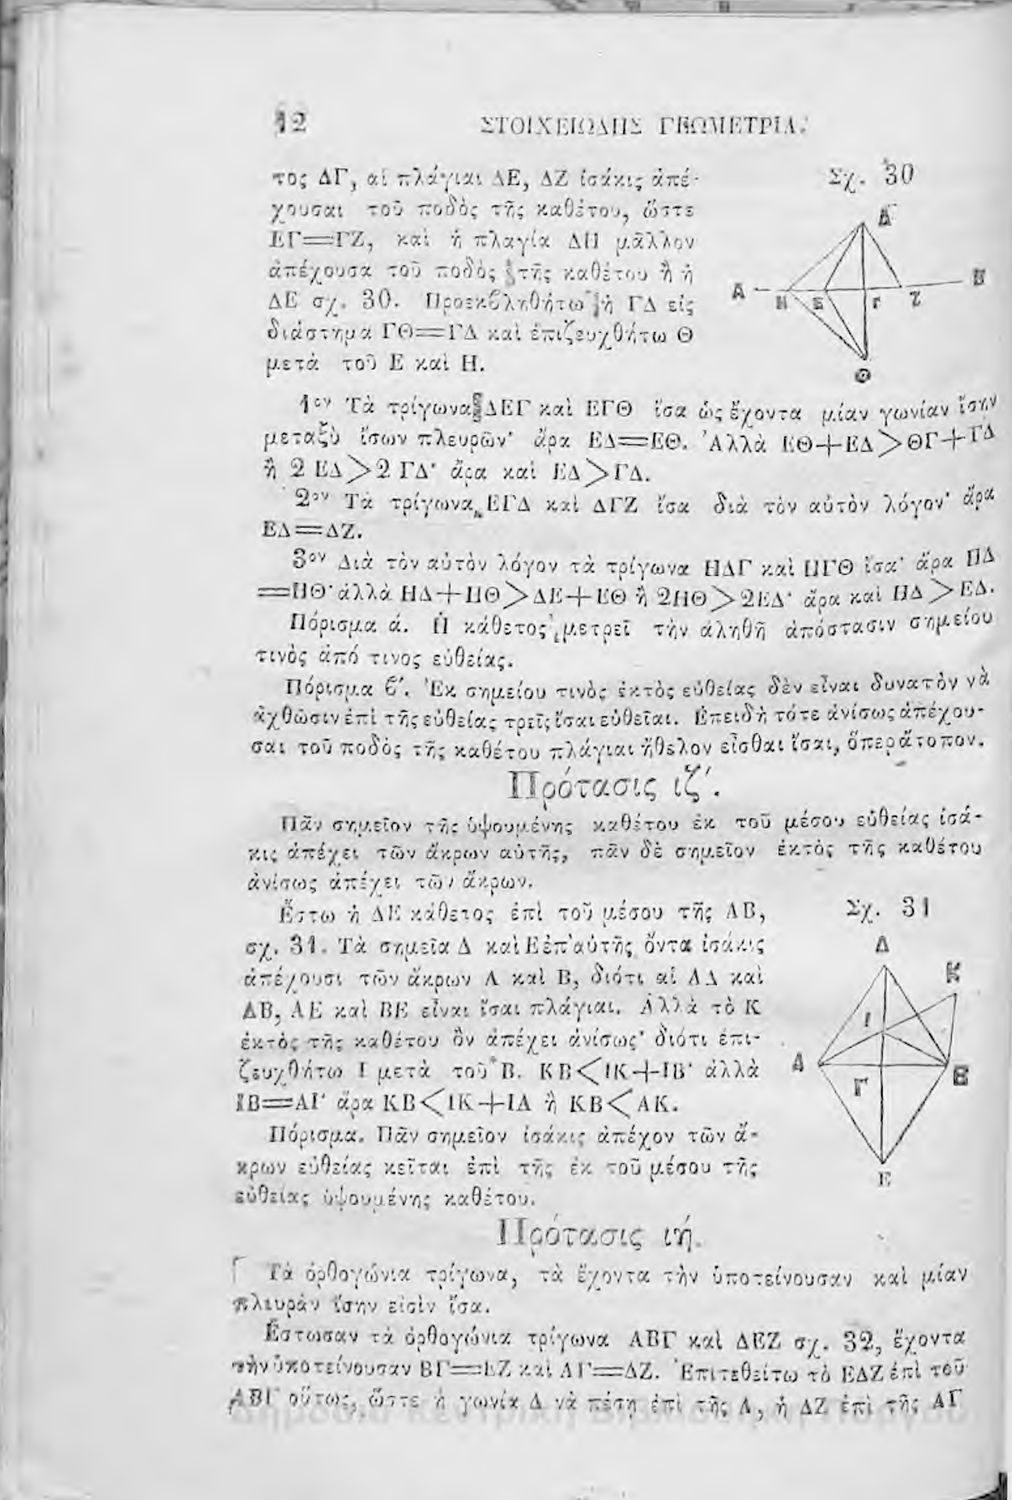 12 ΣΤΟΙΧΕΙΩΔΗΣ ΓΕΩΜΕΤΡΙΑ.
τος ΔΓ, αἱ πλάγιαι ΔΕ, ΔΖ ἰσάκις ἀπέ-
χουσαι τοῦ ποδὸς τῆς καθέτου, ὥστε
ΕΓ=ΓΖ, καὶ ἡ πλαγία ΔΗ μᾶλλον
ἀπέχουσα τοῦ ποδὸς τῆς καθέτου ἢ ἡ
ΔΕ σχ. 30. Προεκβληθήτω ἡ ΓΔ εἰς
διάστημα ΓΘ=ΓΔ καὶ ἐπιζευχθήτω Θ
μετὰ τοῦ Ε καὶ Η.
Σχ. 30
Δ
Α Η Ε Γ Ζ Β
Θ
1ον Τὰ τρίγωνα ΔΕΓ καὶ ΕΓΘ ἴσα ὡς ἔχοντα μίαν γωνίαν ἴσην
μεταξὺ ἴσων πλευρῶν· ἄρα ΕΔ=ΕΘ. Ἀλλὰ ΕΘ+ΕΔ>ΘΓ+ΓΔ
ἢ 2 ΕΔ>2 ΓΔ· ἄρα καὶ ΕΔ>ΓΔ.
2ον Τὰ τρίγωνα ΕΓΔ καὶ ΔΓΖ ἴσα διὰ τὸν αὐτὸν λόγον· ἄρα
ΕΔ=ΔΖ.
3ον Διὰ τὸν αὐτὸν λόγον τὰ τρίγωνα ΗΔΓ καὶ ΗΓΘ ἴσα· ἄρα ΗΔ
=ΗΘ· ἀλλὰ ΗΔ+ΗΘ>ΔΕ+ΕΘ ἢ 2ΗΘ>2ΕΔ· ἄρα καὶ ΗΔ>ΕΔ.
Πόρισμα ά. Ἡ κάθετος μετρεῖ τὴν ἀληθῆ ἀπόστασιν σημείου
τινὸς ἀπό τινος εὐθείας.
Πόρισμα ϐ′. Ἐκ σημείου τινὸς ἐκτὸς εὐθείας δὲν εἶναι δυνατὸν νὰ
ἀχθῶσιν ἐπὶ τῆς εὐθείας τρεῖς ἴσαι εὐθεῖαι. Ἐπειδὴ τότε ἀνίσως ἀπέχου-
σαι τοῦ ποδὸς τῆς καθέτου πλάγιαι ἤθελον εἶσθαι ἴσαι, ὅπερ ἄτοπον.
Πρότασις ιζ′.
Πᾶν σημεῖον τῆς ὑψουμένης καθέτου ἐκ τοῦ μέσου εὐθείας ἰσά-
κις ἀπέχει τῶν ἄκρων αὐτῆς, πᾶν δὲ σημεῖον ἐκτὸς τῆς καθέτου
ἀνίσως ἀπέχει τῶν ἄκρων.
Ἔστω ἡ ΔΕ κάθετος ἐπὶ τοῦ μέσου τῆς ΑΒ,
σχ. 31. Τὰ σημεῖα Δ καὶ Ε ἐπ' αὐτῆς ὄντα ἰσάκις
ἀπέχουσι τῶν ἄκρων Α καὶ Β, διότι αἱ ΑΔ καὶ
ΔΒ, ΑΕ καὶ ΒΕ εἶναι ἴσαι πλάγιαι. Ἀλλὰ τὸ Κ
ἐκτὸς τῆς καθέτου ὂν ἀπέχει ἀνίσως· διότι ἐπι-
ζευχθήτω Ι μετὰ τοῦ Β. ΚΒ<ΙΚ+ΙΒ· ἀλλὰ
ΙΒ=ΑΙ· ἄρα ΚΒ<ΙΚ+ΙΑ ἢ ΚΒ<ΑΚ.
Πόρισμα. Πᾶν σημεῖον ἰσάκις ἀπέχον τῶν ἄ-
κρων εὐθείας κεῖται ἐπὶ τῆς ἐκ τοῦ μέσου τῆς
εὐθείας ὑψουμένης καθέτου.
Σχ. 31
Δ
Κ
Ι
Α Γ Β
Ε
Πρότασις ιή.
Τὰ ὀρθογώνια τρίγωνα, τὰ ἔχοντα τὴν ὑποτείνουσαν καὶ μίαν
πλευρὰν ἴσην εἰσὶν ἴσα.
Ἔστωσαν τὰ ὀρθογώνια τρίγωνα ΑΒΓ καὶ ΔΕΖ σχ. 32, ἔχοντα
τὴν ὑποτείνουσαν ΒΓ=ΕΖ καὶ ΑΓ=ΔΖ. Ἐπιτεθείτω τὸ ΕΔΖ ἐπὶ τοῦ
ΑΒΓ οὕτως, ὥστε ἡ γωνία Δ νὰ πέσῃ ἐπὶ τῆς Α, ἡ ΔΖ ἐπὶ τῆς ΑΓ